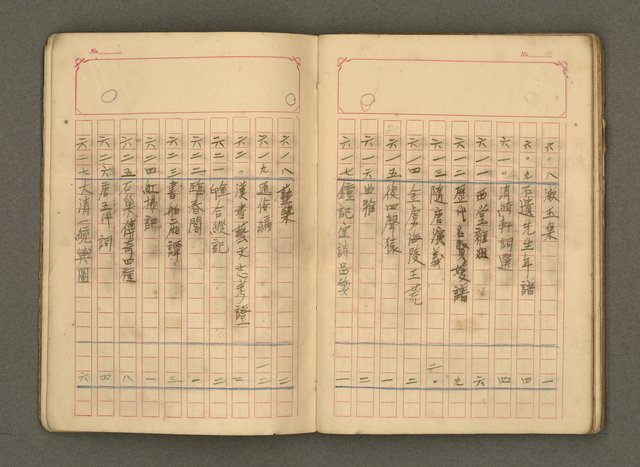 No.
六〇八 漱玉集 一
六〇九 石遺先生年譜 四
六一〇 清 軒詞選 四
六一一 西堂雜俎 六
六一二 歷代名賢 譜 九
六一三 隋唐演義 二〇
六一四 金虜海陵王荒 二
六一五 後四聲猿 一
六一六 曲雅 二
六一七 鐘記室詩品箋 一
No.
六一八 集 二
六一九 通俗編 一二
六二〇 漢書藝文志考證 二
六二一 合縱記 一
六二二 臨春閣 一
六二三 書 二 譚 三
六二四 紅拂記 一
六二五 石巢傳奇四種 八
六二六 唐五代詞 四
六二七 大清 輿圖 六